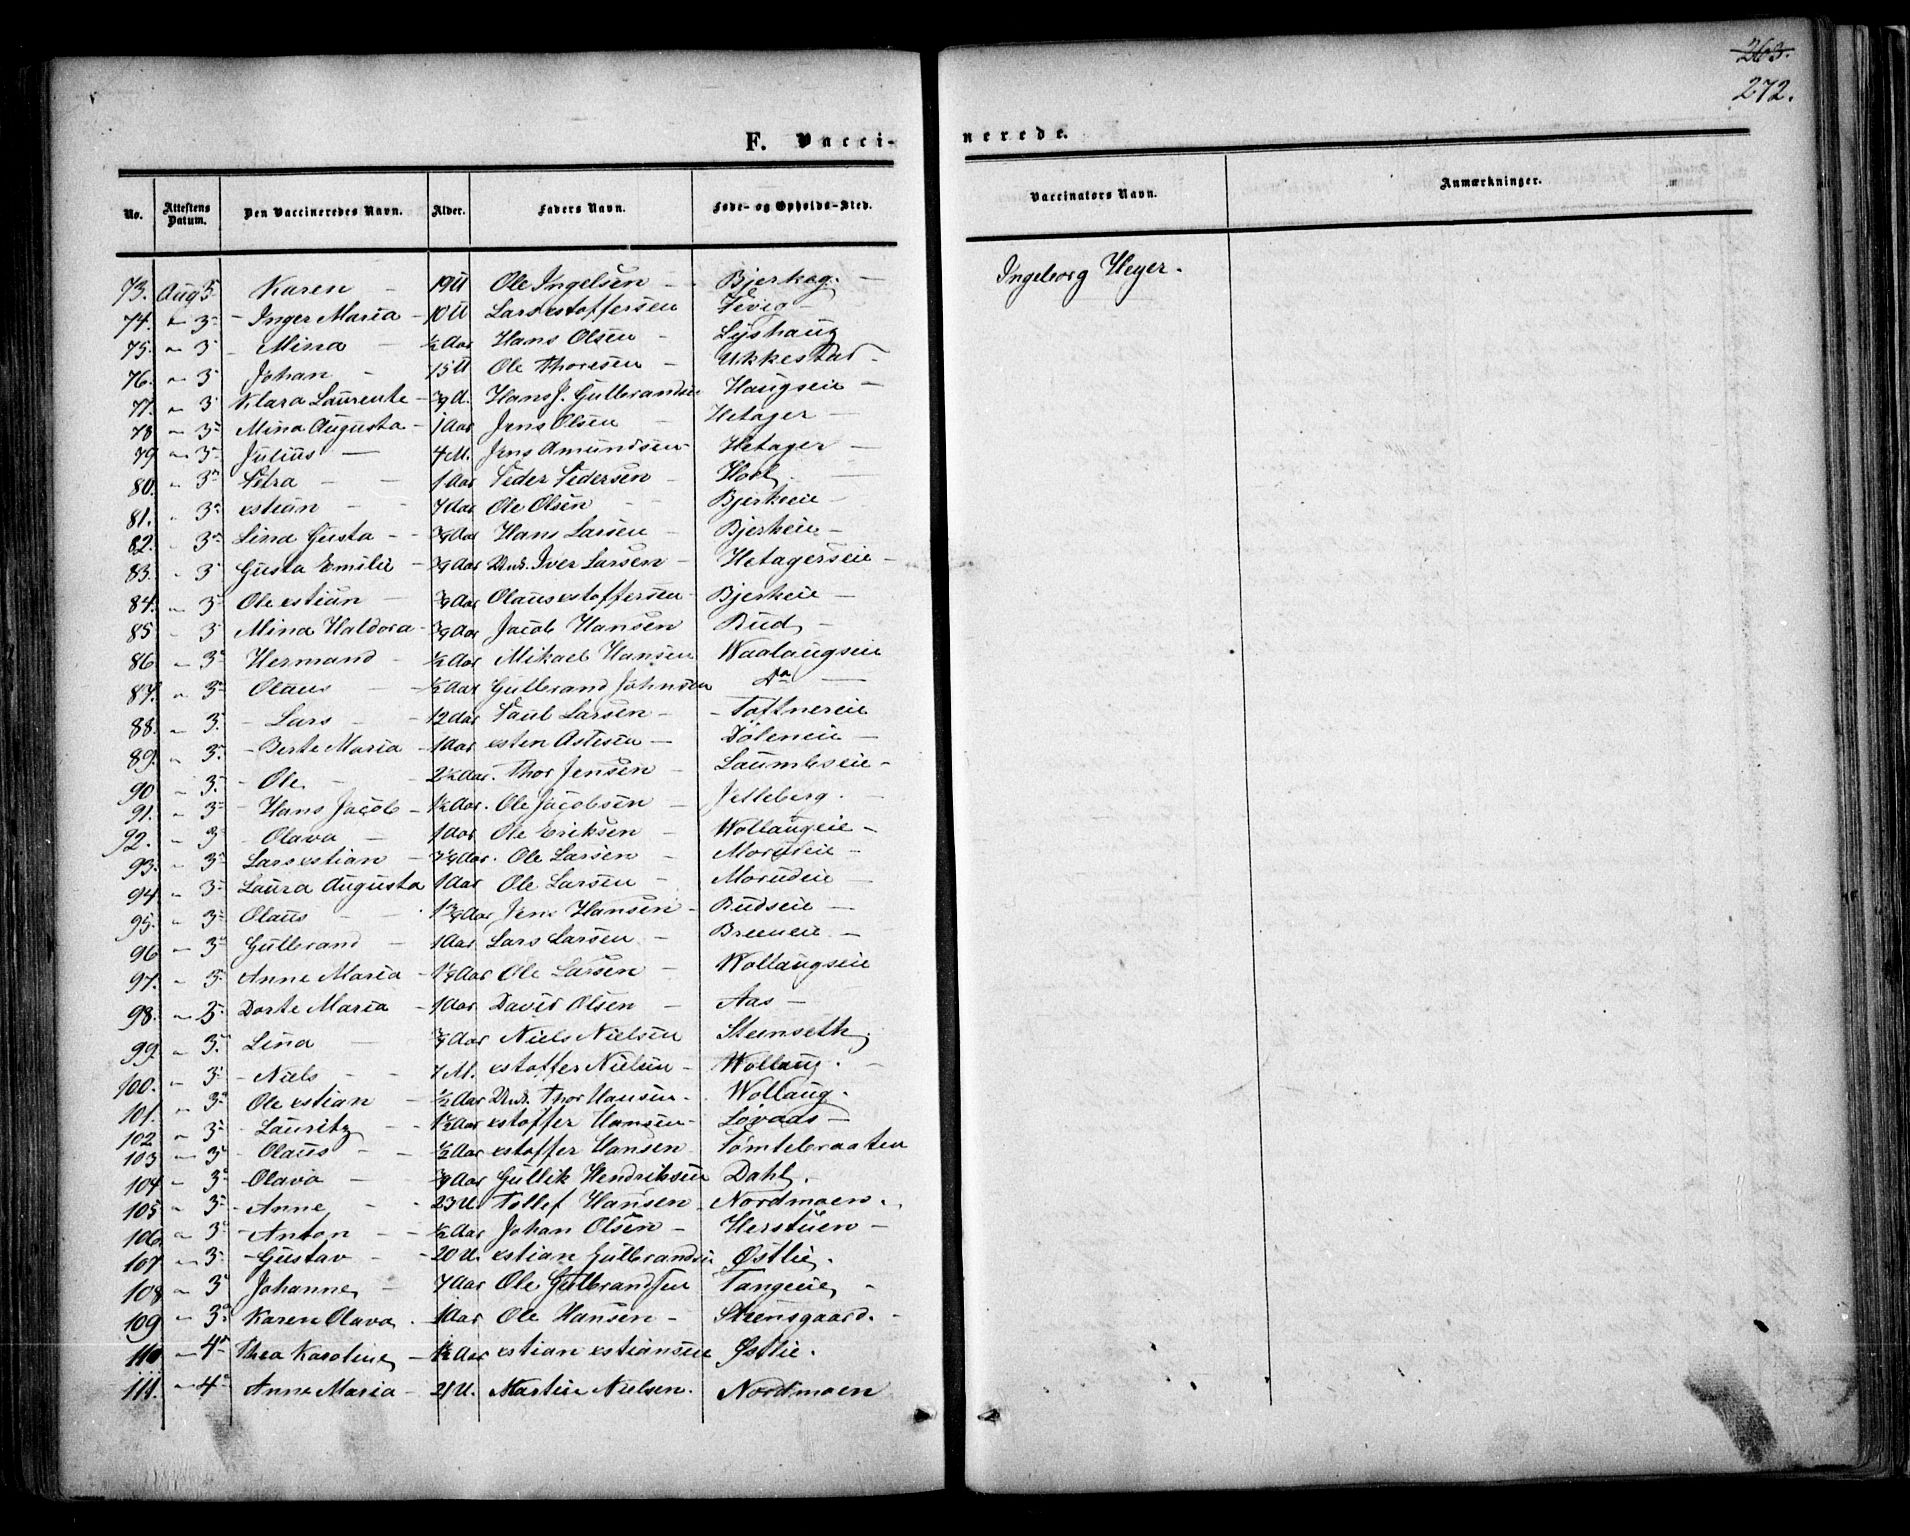 263.
272.
F. Vacci-
nerede.
No. Attestens Datum. Den Vaccineredes Navn. Alder. Faders Navn. Føde- og Opholds-Sted. Vaccinators Navn. Anmærkninger.
73. Aug 3 Karen - 19 U Ole Ingelsen - Ingeborg Heyer.
74. " 3 - Inger Maria - 10 U Lars xstoffersen
75. " 3 - Mina - ½ Aar Hans Olsen - Lyshaug
76. " 3 Johan - 15 U Ole Thoresen - Ukkestad -
77. " 3 Klara Laurente - Hans J. Gulbrandsen Haugseie -
78 " 3 Mina Augusta - 1 Aar Jens Olsen - Hetager -
79 " 3 Julius - 4 M. Jens Amundsen - Hetager -
80. " 3 Petra - 1 Aar Peder Pedersen - Hoel
81. " 3 xstian - 7 Aar Ole Olsen - Bjerkeie -
82. " 3 Lina Gusta - ¾ Aar Hans Larsen - Bjerkeie -
83. " 3 Gusta Emilie - ¾ Aar Iver Larsen - Hetagerseie -
84. " 3 Ole xstian - ¾ Aar Olaus xstoffersen - Bjerkeie -
85 " 3 Mina Haldora - ¾ Aar Jacob Hansen Rud -
86 " 3 Hermand - ½ Aar Mikael Hansen Waalaugseie
87. " 3 Olaus - ½ Aar Gulbrand Johnsen Do -
88. " 3. - Lars - 12 Aar Paul Larsen - Toftnereie
89. " 3. - Berte Maria - 1 Aar xsten - Døleneie -
90 " 3. - Ole - 2½ Aar. Thor Jensen - Laumbseie -
91. " 3 - Hans Jacob - 1½ Aar. Ole Jacobsen - Jelleberg. -
92. " 3 - Olava - 1 Aar Ole Eriksen - Wollaugeie -
93. " 3 Lars xstian - Ole Larsen - Morudeie -
94 " 3 Laura Augusta 1 Aar Ole Larsen - Morudeie -
95. " 3 Olaus - 1¾ Aar Jens Hansen - Rudseie -
96 " 3 Gulbrand - 1 Aar Lars Larsen - Breeneie -
97. " 3 Anne Maria - Ole Larsen - Wollaugseie
98. " 3 Dorte Maria - 1 Aar David Olsen - Aas -
99. " 3. Lina - ¾ Aar Niels Nielsen Steenseth
100. " 3 - Niels - 7 M. xstoffer Nielsen - Wollaug. -
101. " 3 Ole xstian - ½ Aar Thor Hansen - Wollaug.
102 " 3 - Lauritz - 1½ Aar xstoffer Hansen - Løvaas -
103 " 3 - Olaus - ½ Aar xstoffer Hansen Tømtebraaten
104 " 3 - Olava - ¾ Aar Gullik Hendriksen Dahl.
105 " 3 - Anne - 23 U. Tollef Hansen - Nordmoen -
106 " 3 - Anton - ½ Aar Johan Olsen - Herstuen -
107 " 3 - Gustav - 20 U. xstian Gulbrandsen Østlie.
108 " 3 Johanne - 7 Aar Ole Gulbrandsen Tangeie -
109 " 3 Karen Olava. 1 Aar Ole Hansen - Steensgaard. -
110 " 4 Thea Karoline - 1½ Aar xstian xstiansen Østlie.
111. " 4 Anne Maria - 21 U. Martin Nielsen. Nordmoen